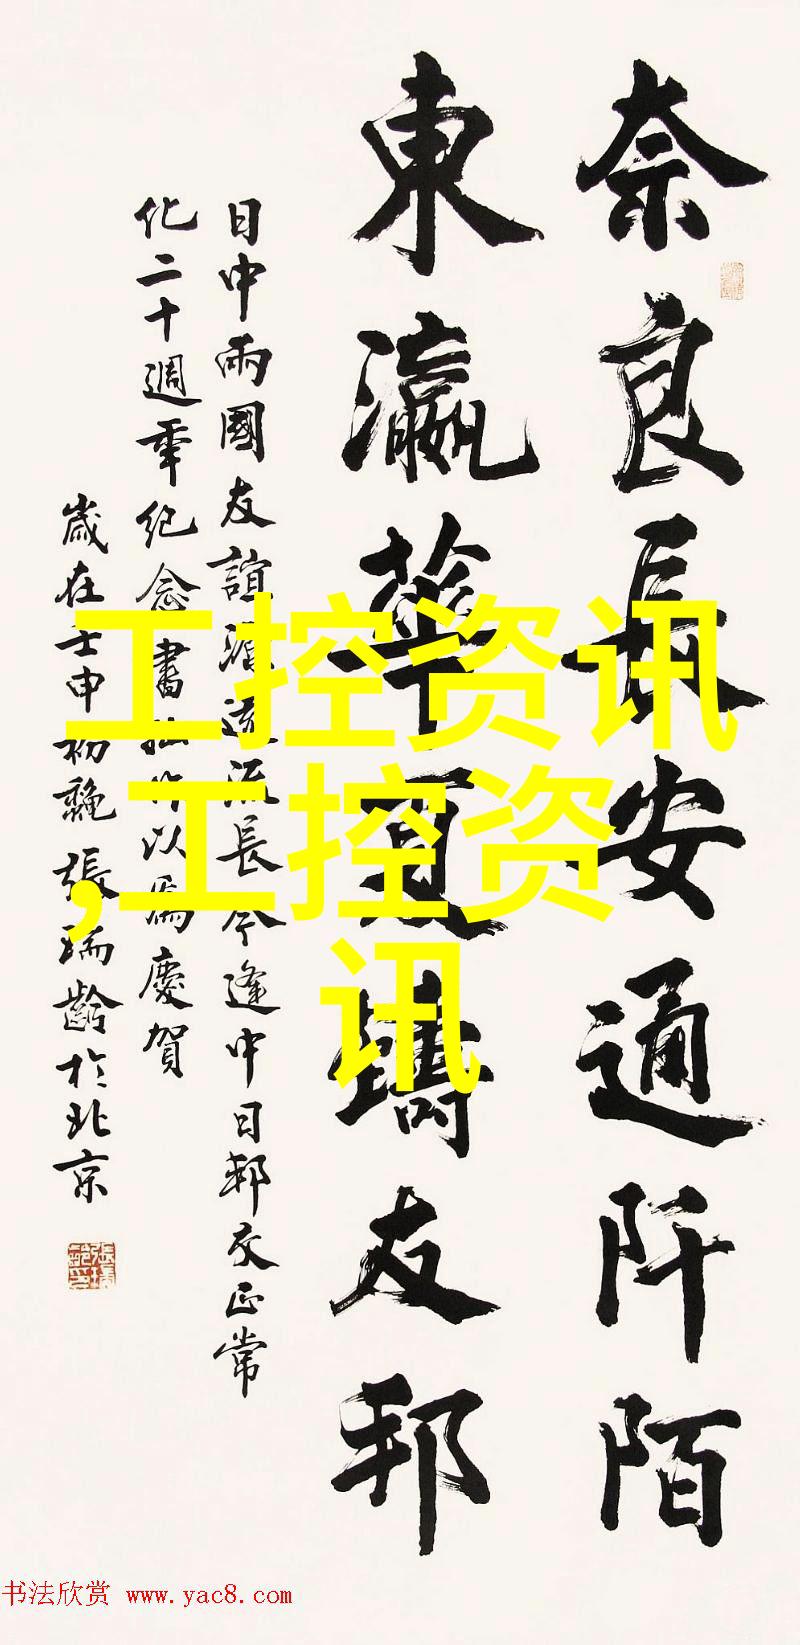 奈良長安通阡陌
東瀛華夏鑄友邦
日中兩國友誼源遠流長今逢中日邦交正常
化二十週年紀念書拙作以為慶賀
歲在壬申初龝張瑞齡於北京
工控资讯
,工控资
讯
书法欣赏 www.yac8.com